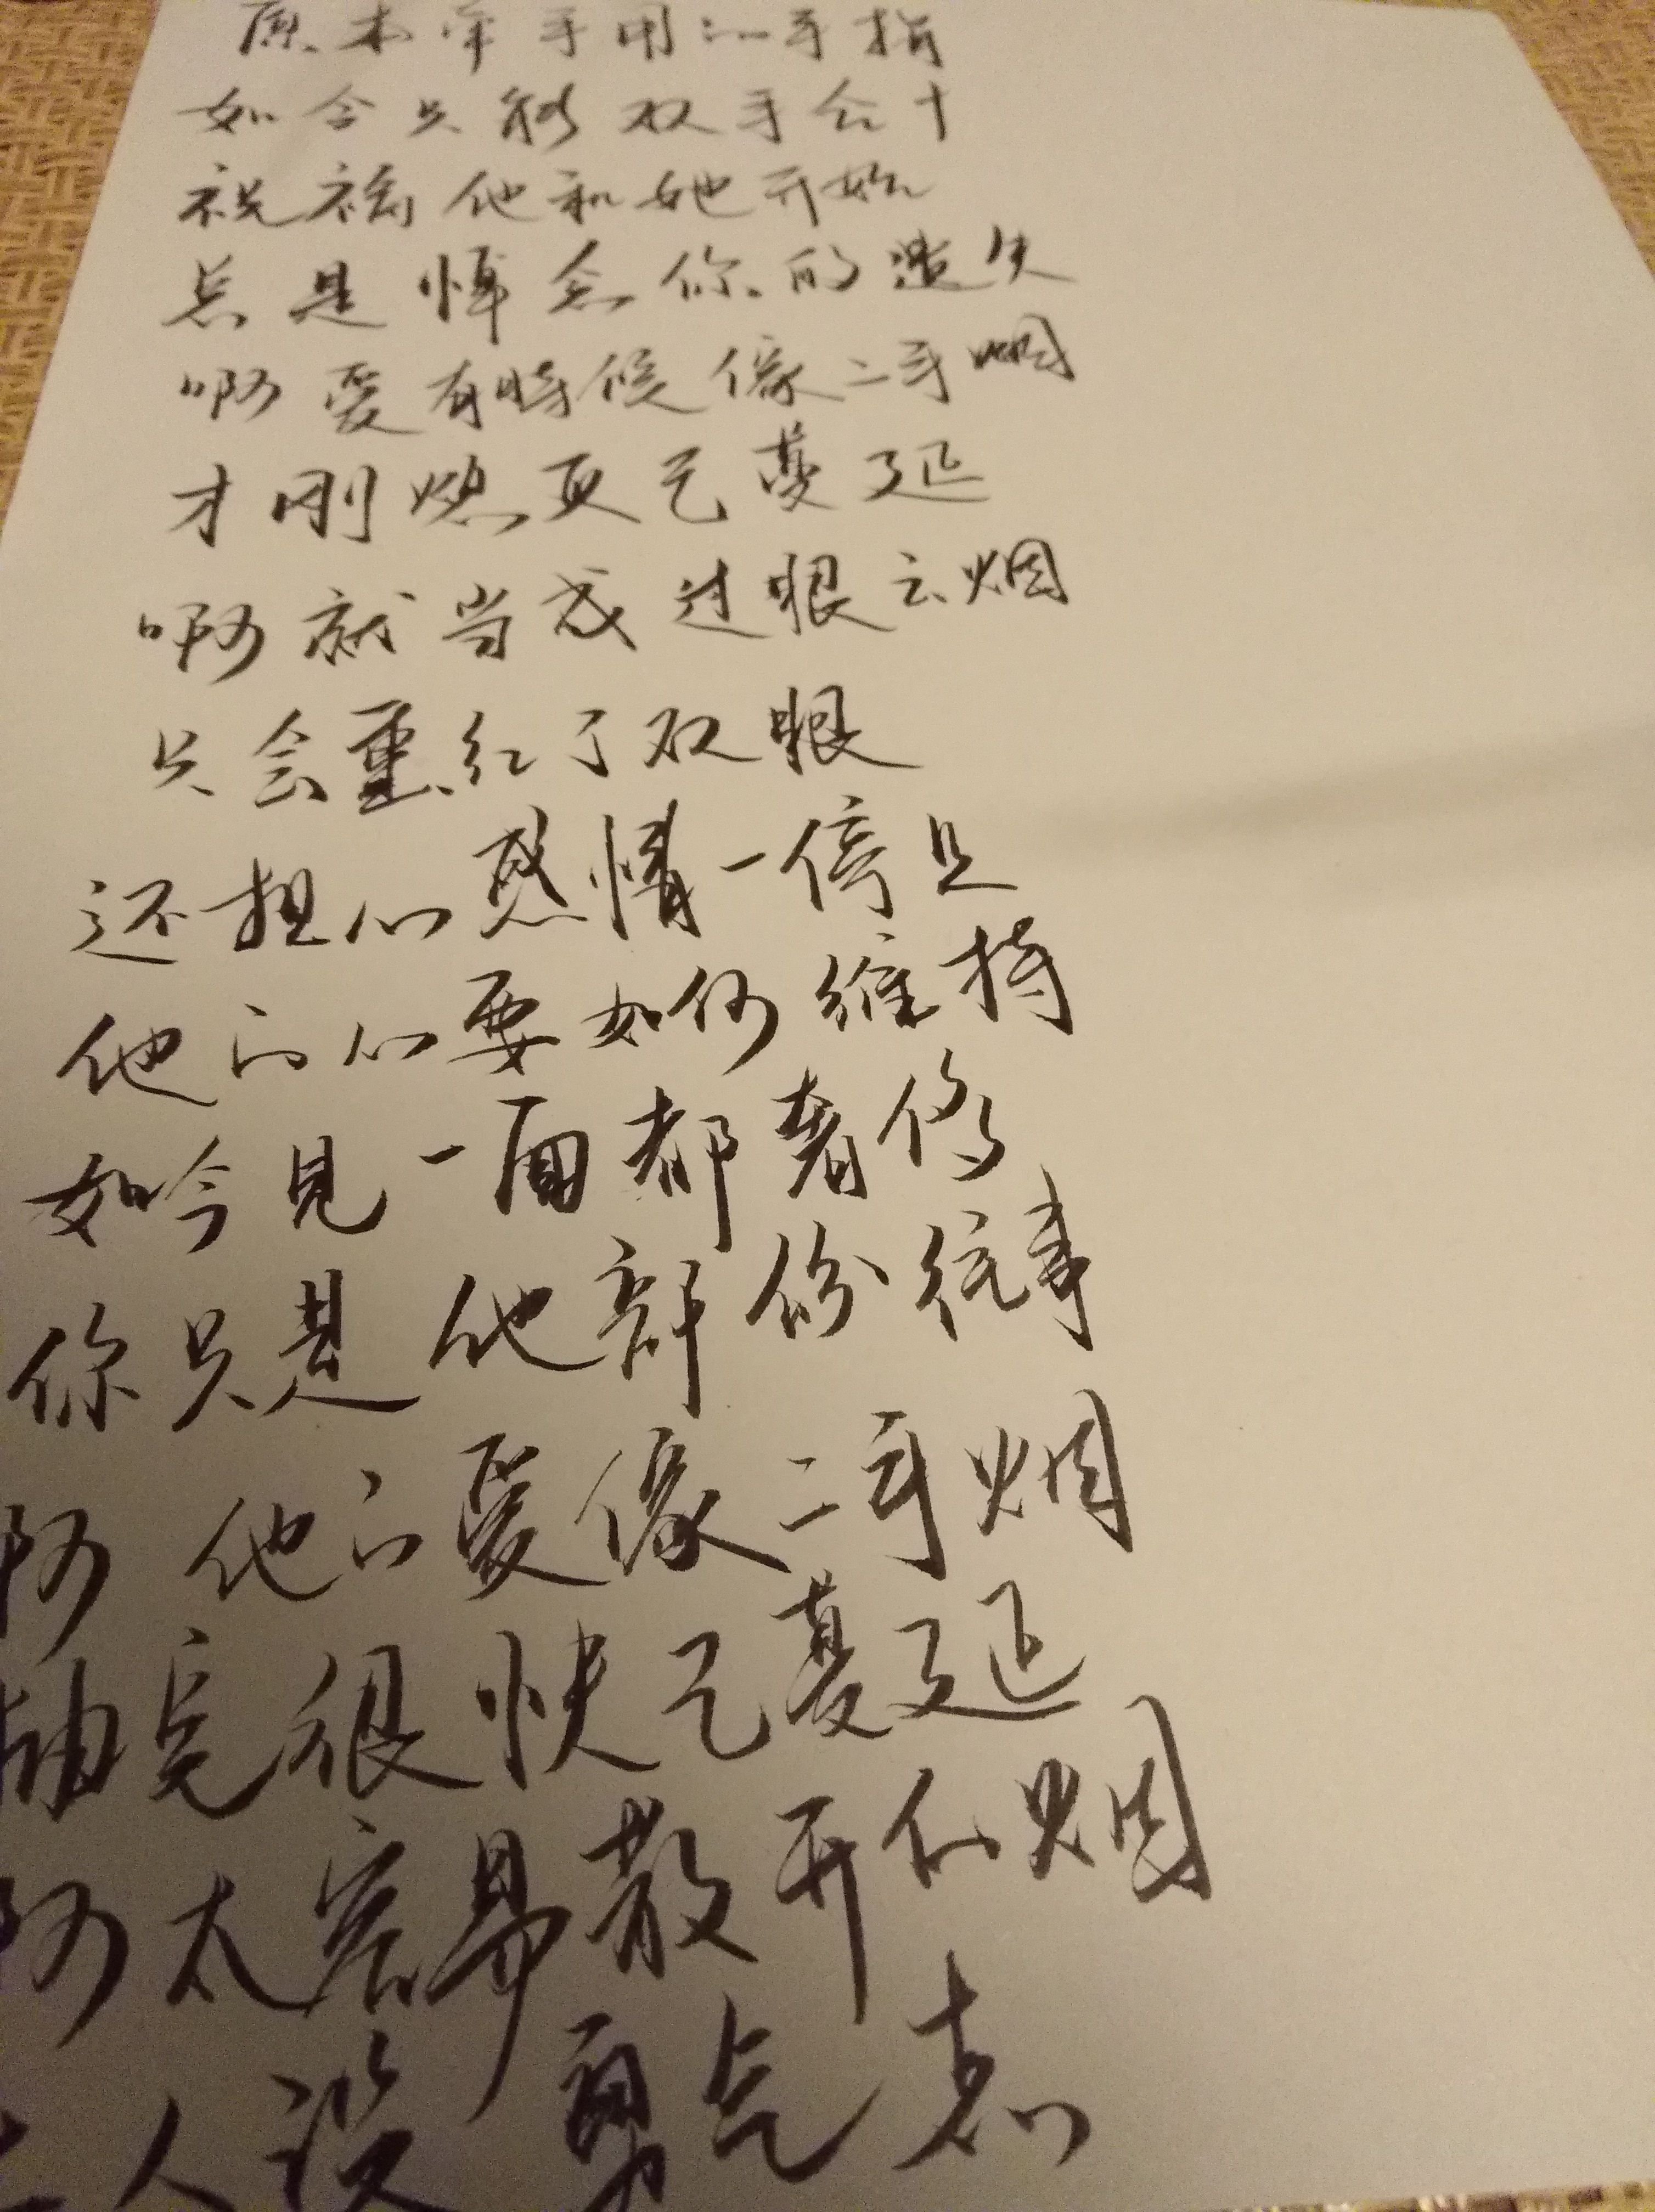 原本牵手用的手指
如今只能双手合十
祝福他和她开始
总是悼念你的遗失
啊爱有时候像二手烟
才刚熄灭已蔓延
啊就当成过眼云烟
只会熏红了双眼
还担心感情一停止
他的心要如何维持
如今见一面都奢侈
你只是他部份往事
啊他的爱像二手烟
抽完很快已蔓延
啊太容易散开的烟
让人没勇气恋